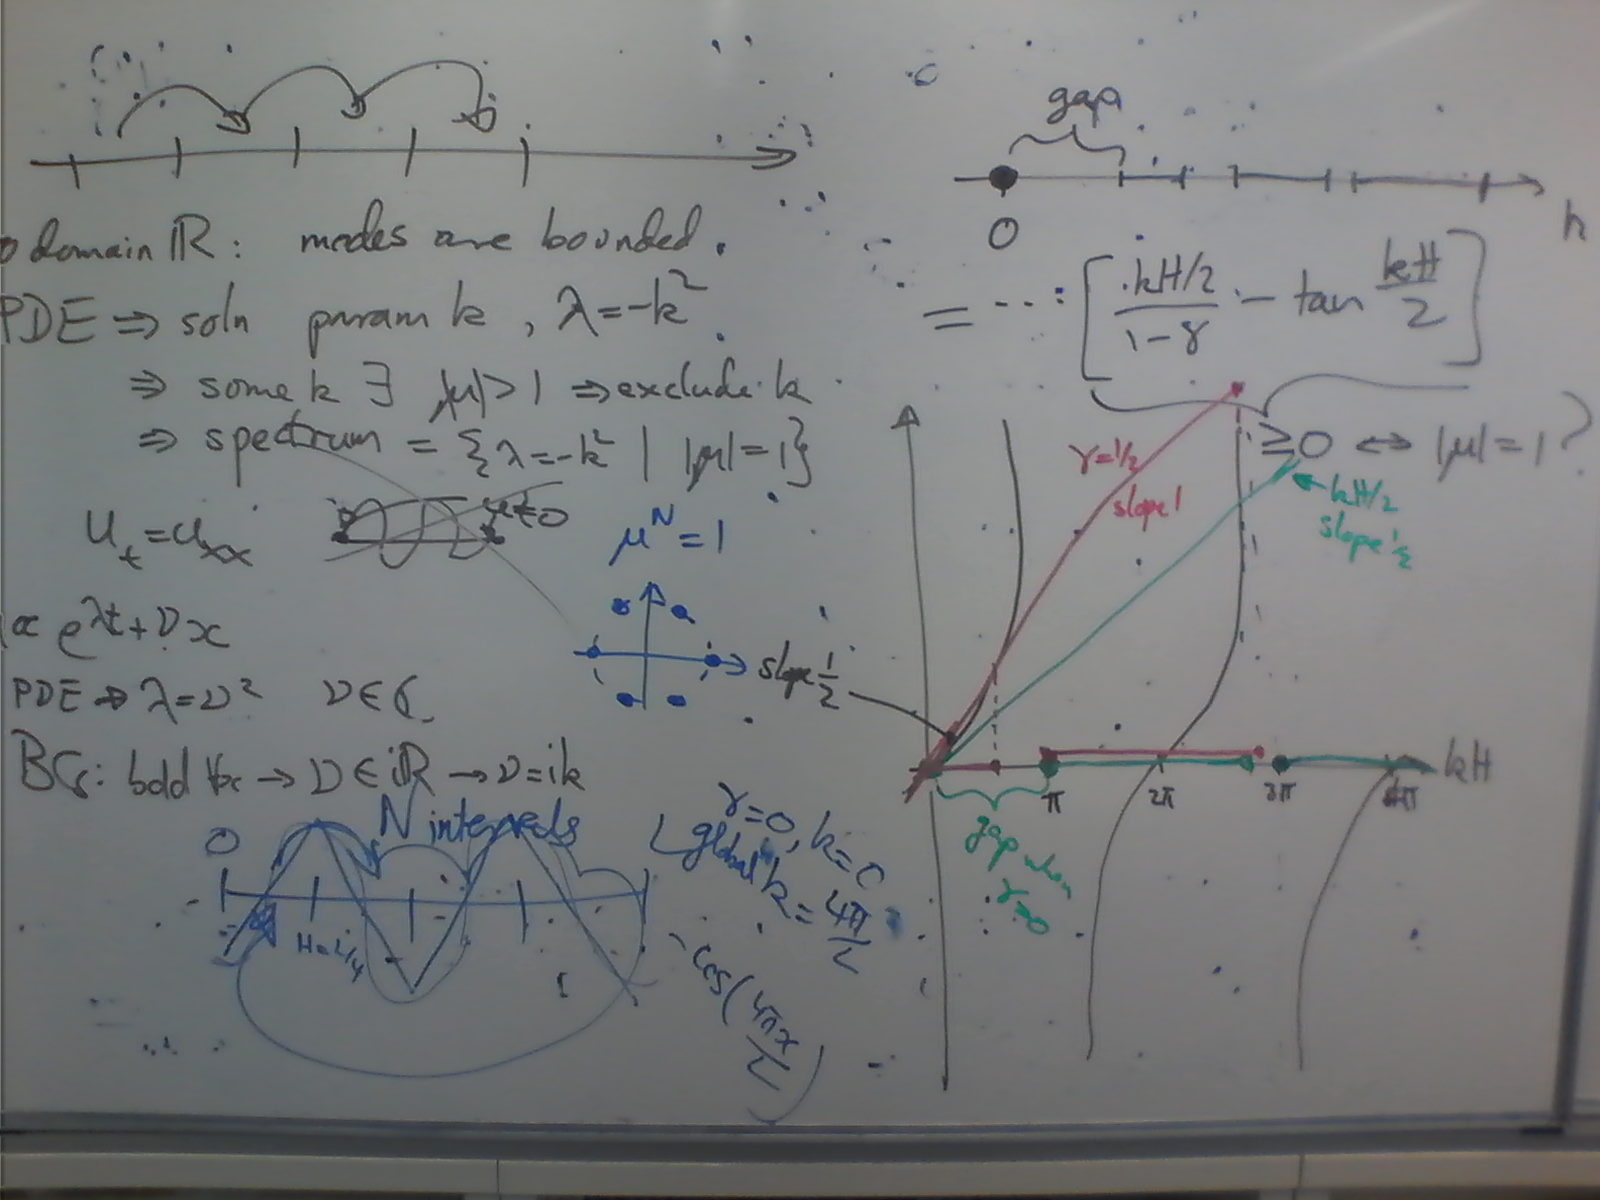 domain ℝ: modes are bounded.
PDE ⇒ soln param k, λ=-k²
⇒ some k ∃ |μ|>1 ⇒ exclude k
⇒ spectrum = {λ=-k² | |μ|=1}
u_t = u_xx
∝ e^{λt+νx}
PDE ⇒ λ=ν² ν∈ℂ
BCs: bdd ∀x → ν∈iℝ → ν=ik
μ^N = 1
0
N intervals
H=L/4
γ=0, k=0
global k = 4π/L
cos(4πx/L)
gap
0
k
= ⋯ [ (kH/2)/(1-γ) - tan kH/2 ]
≥0 ↔ |μ|=1?
γ=1/2
slope 1
kH/2
slope ½
slope 1/2
π 2π 3π 4π kH
gap when
γ=0